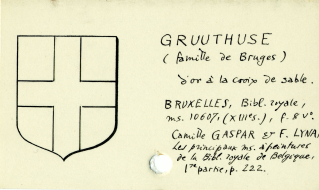 GRUUTHUSE
(famille de Bruges)
d'or à la croix de sable.
BRUXELLES, Bibl. royale,
ms. 10607, (XIIIe s.), f. 8 v°.
Camille GASPAR et F. LYNA,
Les principaux ms. à peintures
de la Bibl. royale de Belgique,
1re partie, p. 222.